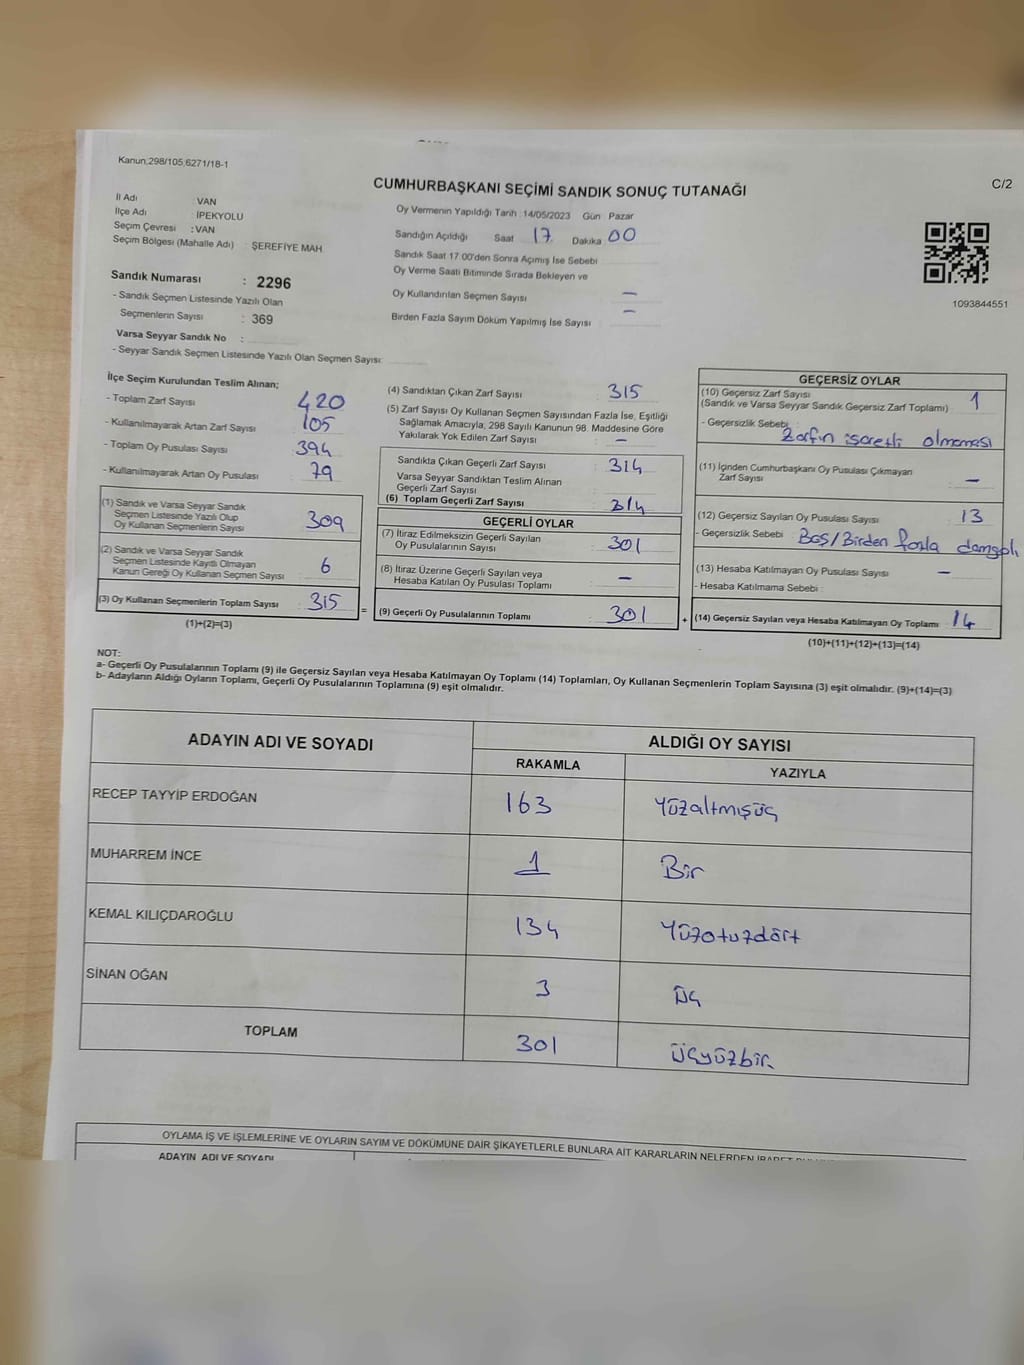 Kanun;298/105,6271/18-1
C/2
CUMHURBAŞKANI SEÇİMİ SANDIK SONUÇ TUTANAĞI
İl Adı : VAN
İlçe Adı İPEKYOLU
Seçim Çevresi : VAN
Seçim Bölgesi (Mahalle Adı) : ŞEREFİYE MAH
Sandık Numarası : 2296
- Sandık Seçmen Listesinde Yazılı Olan
Seçmenlerin Sayısı : 369
Varsa Seyyar Sandık No :
- Seyyar Sandık Seçmen Listesinde Yazılı Olan Seçmen Sayısı:
Oy Vermenin Yapıldığı Tarih : 14/05/2023 Gün Pazar
Sandığın Açıldığı Saat 17 Dakika 00
Sandık Saat 17:00'den Sonra Açımış İse Sebebi
Oy Verme Saati Bitiminde Sırada Bekleyen ve
Oy Kullandırılan Seçmen Sayısı –
Birden Fazla Sayım Döküm Yapılmış İse Sayısı : –
1093844551
İlçe Seçim Kurulundan Teslim Alınan;
- Toplam Zarf Sayısı 420
- Kullanılmayarak Artan Zarf Sayısı : 105
- Toplam Oy Pusulası Sayısı 394
- Kullanılmayarak Artan Oy Pusulası : 79
(1) Sandık ve Varsa Seyyar Sandık
Seçmen Listesinde Yazılı Olup
Oy Kullanan Seçmenlerin Sayısı : 309
(2) Sandık ve Varsa Seyyar Sandık
Seçmen Listesinde Kayıtlı Olmayan
Kanun Gereği Oy Kullanan Seçmen Sayısı : 6
(3) Oy Kullanan Seçmenlerin Toplam Sayısı : 315 =
(1)+(2)=(3)
(4) Sandıktan Çıkan Zarf Sayısı : 315
(5) Zarf Sayısı Oy Kullanan Seçmen Sayısından Fazla İse, Eşitliği
Sağlamak Amacıyla; 298 Sayılı Kanunun 98. Maddesine Göre
Yakılarak Yok Edilen Zarf Sayısı : –
Sandıkta Çıkan Geçerli Zarf Sayısı : 314
Varsa Seyyar Sandıktan Teslim Alınan
Geçerli Zarf Sayısı :
(6) Toplam Geçerli Zarf Sayısı : 314
GEÇERLİ OYLAR
(7) İtiraz Edilmeksizin Geçerli Sayılan
Oy Pusulalarının Sayısı : 301
(8) İtiraz Üzerine Geçerli Sayılan veya
Hesaba Katılan Oy Pusulası Toplamı : –
(9) Geçerli Oy Pusulalarının Toplamı : 301 +
GEÇERSİZ OYLAR
(10) Geçersiz Zarf Sayısı
(Sandık ve Varsa Seyyar Sandık Geçersiz Zarf Toplamı) : 1
- Geçersizlik Sebebi :
Zarfın işaretli olmaması
(11) İçinden Cumhurbaşkanı Oy Pusulası Çıkmayan
Zarf Sayısı : –
(12) Geçersiz Sayılan Oy Pusulası Sayısı : 13
- Geçersizlik Sebebi : Boş/Birden fazla damgalı
(13) Hesaba Katılmayan Oy Pusulası Sayısı : –
- Hesaba Katılmama Sebebi :
(14) Geçersiz Sayılan veya Hesaba Katılmayan Oy Toplamı : 14
(10)+(11)+(12)+(13)=(14)
NOT:
a- Geçerli Oy Pusulalarının Toplamı (9) ile Geçersiz Sayılan veya Hesaba Katılmayan Oy Toplamı (14) Toplamları, Oy Kullanan Seçmenlerin Toplam Sayısına (3) eşit olmalıdır. (9)+(14)=(3)
b- Adayların Aldığı Oyların Toplamı, Geçerli Oy Pusulalarının Toplamına (9) eşit olmalıdır.
ADAYIN ADI VE SOYADI
ALDIĞI OY SAYISI
RAKAMLA YAZIYLA
RECEP TAYYİP ERDOĞAN 163 Yüzaltmışüç
MUHARREM İNCE 1 Bir
KEMAL KILIÇDAROĞLU 134 Yüzotuzdört
SİNAN OĞAN 3 Üç
TOPLAM 301 Üçyüzbir
OYLAMA İŞ VE İŞLEMLERİNE VE OYLARIN SAYIM VE DÖKÜMÜNE DAİR ŞİKAYETLERLE BUNLARA AİT KARARLARIN NELERDEN İBARET
ADAYIN ADI VE SOYADI